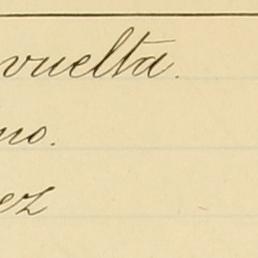 vuelta.
no.
ez